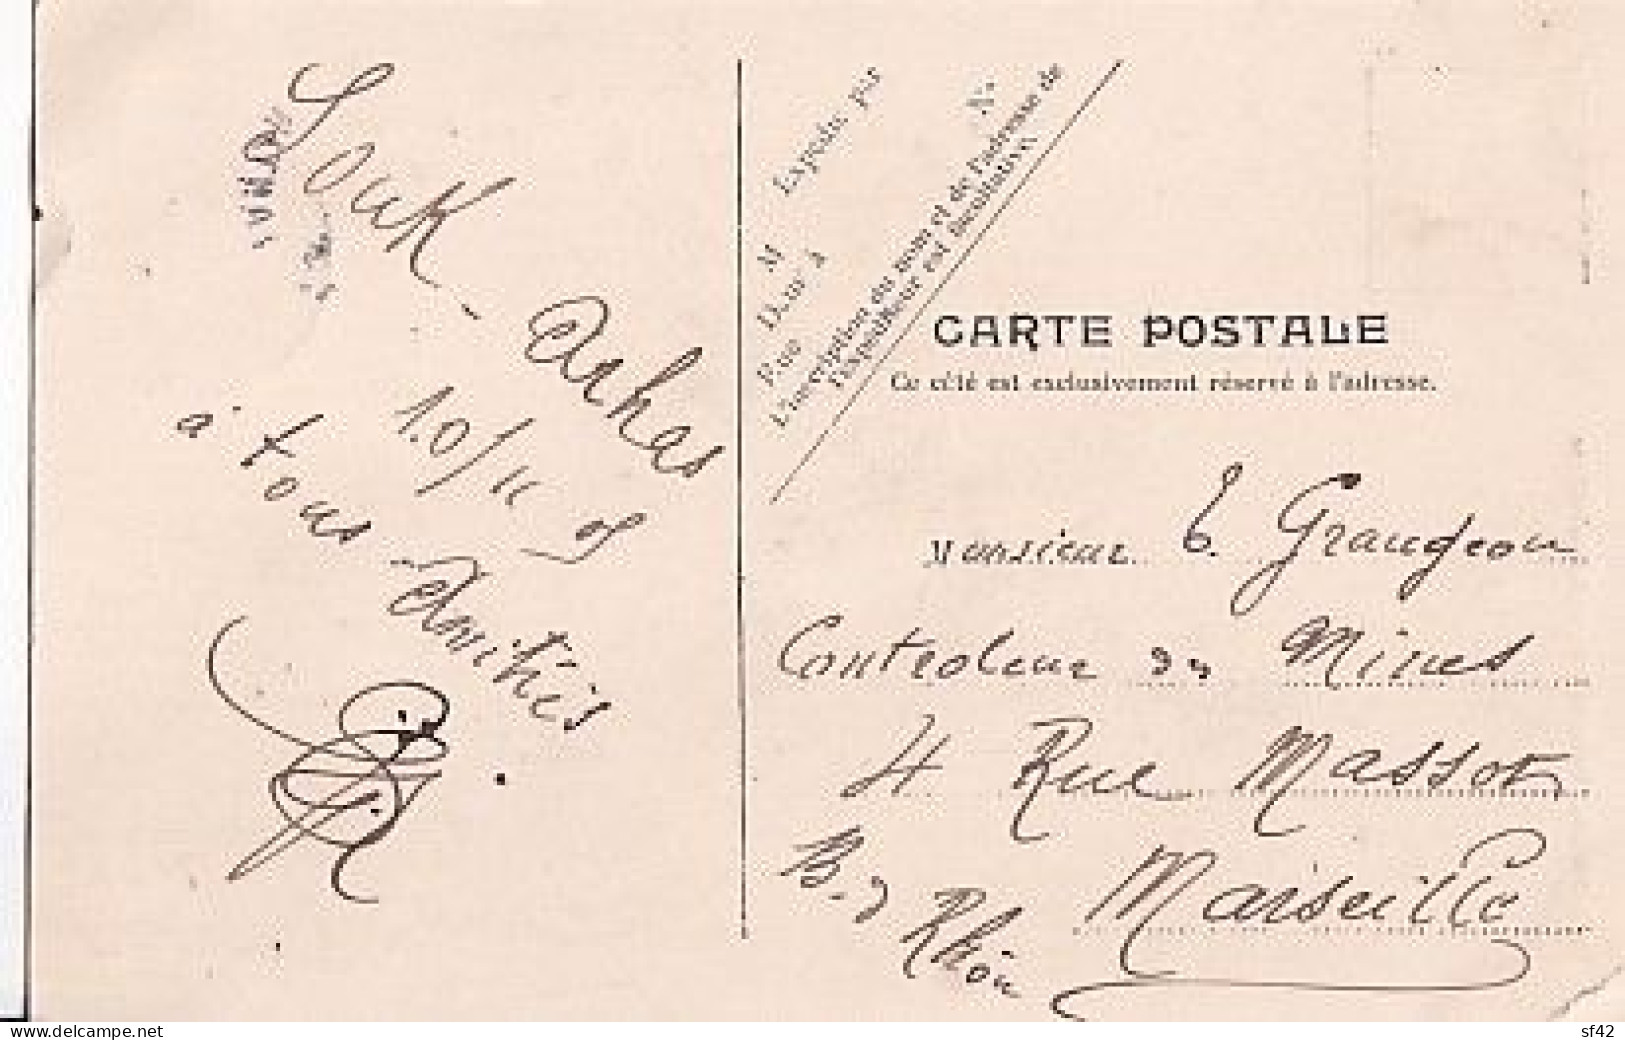 Souk-Arhas
10/11 05
à tous
Amitiés
Expédié par
M
Rue
N°
L'inscription du nom et de l'adresse de
l'expéditeur est facultative
CARTE POSTALE
Ce côté est exclusivement réservé à l'adresse.
Monsieur E. Grandjean
Controleur des Mines
4 Rue Massot
Marseille
B. d Rhône
www.delcampe.net
sf42